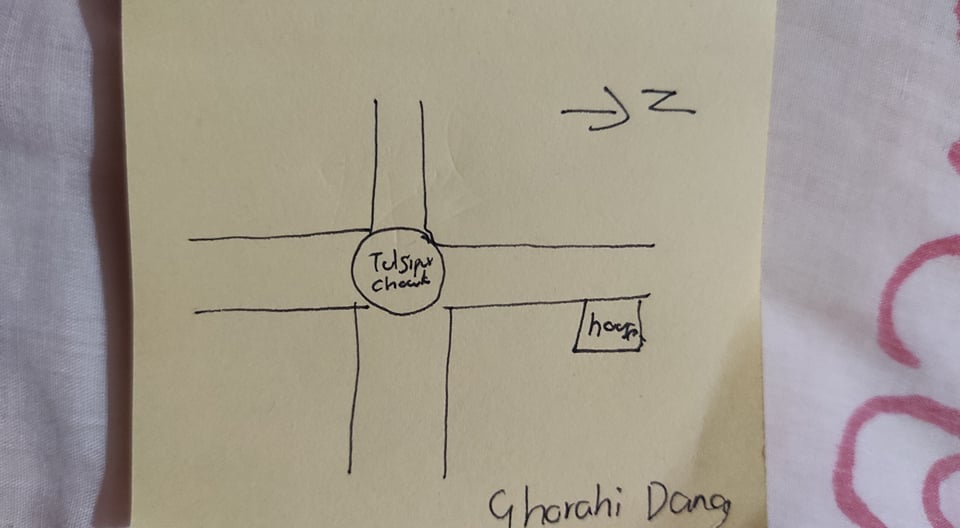 N
Tulsipur
Chowk
house
Ghorahi Dang